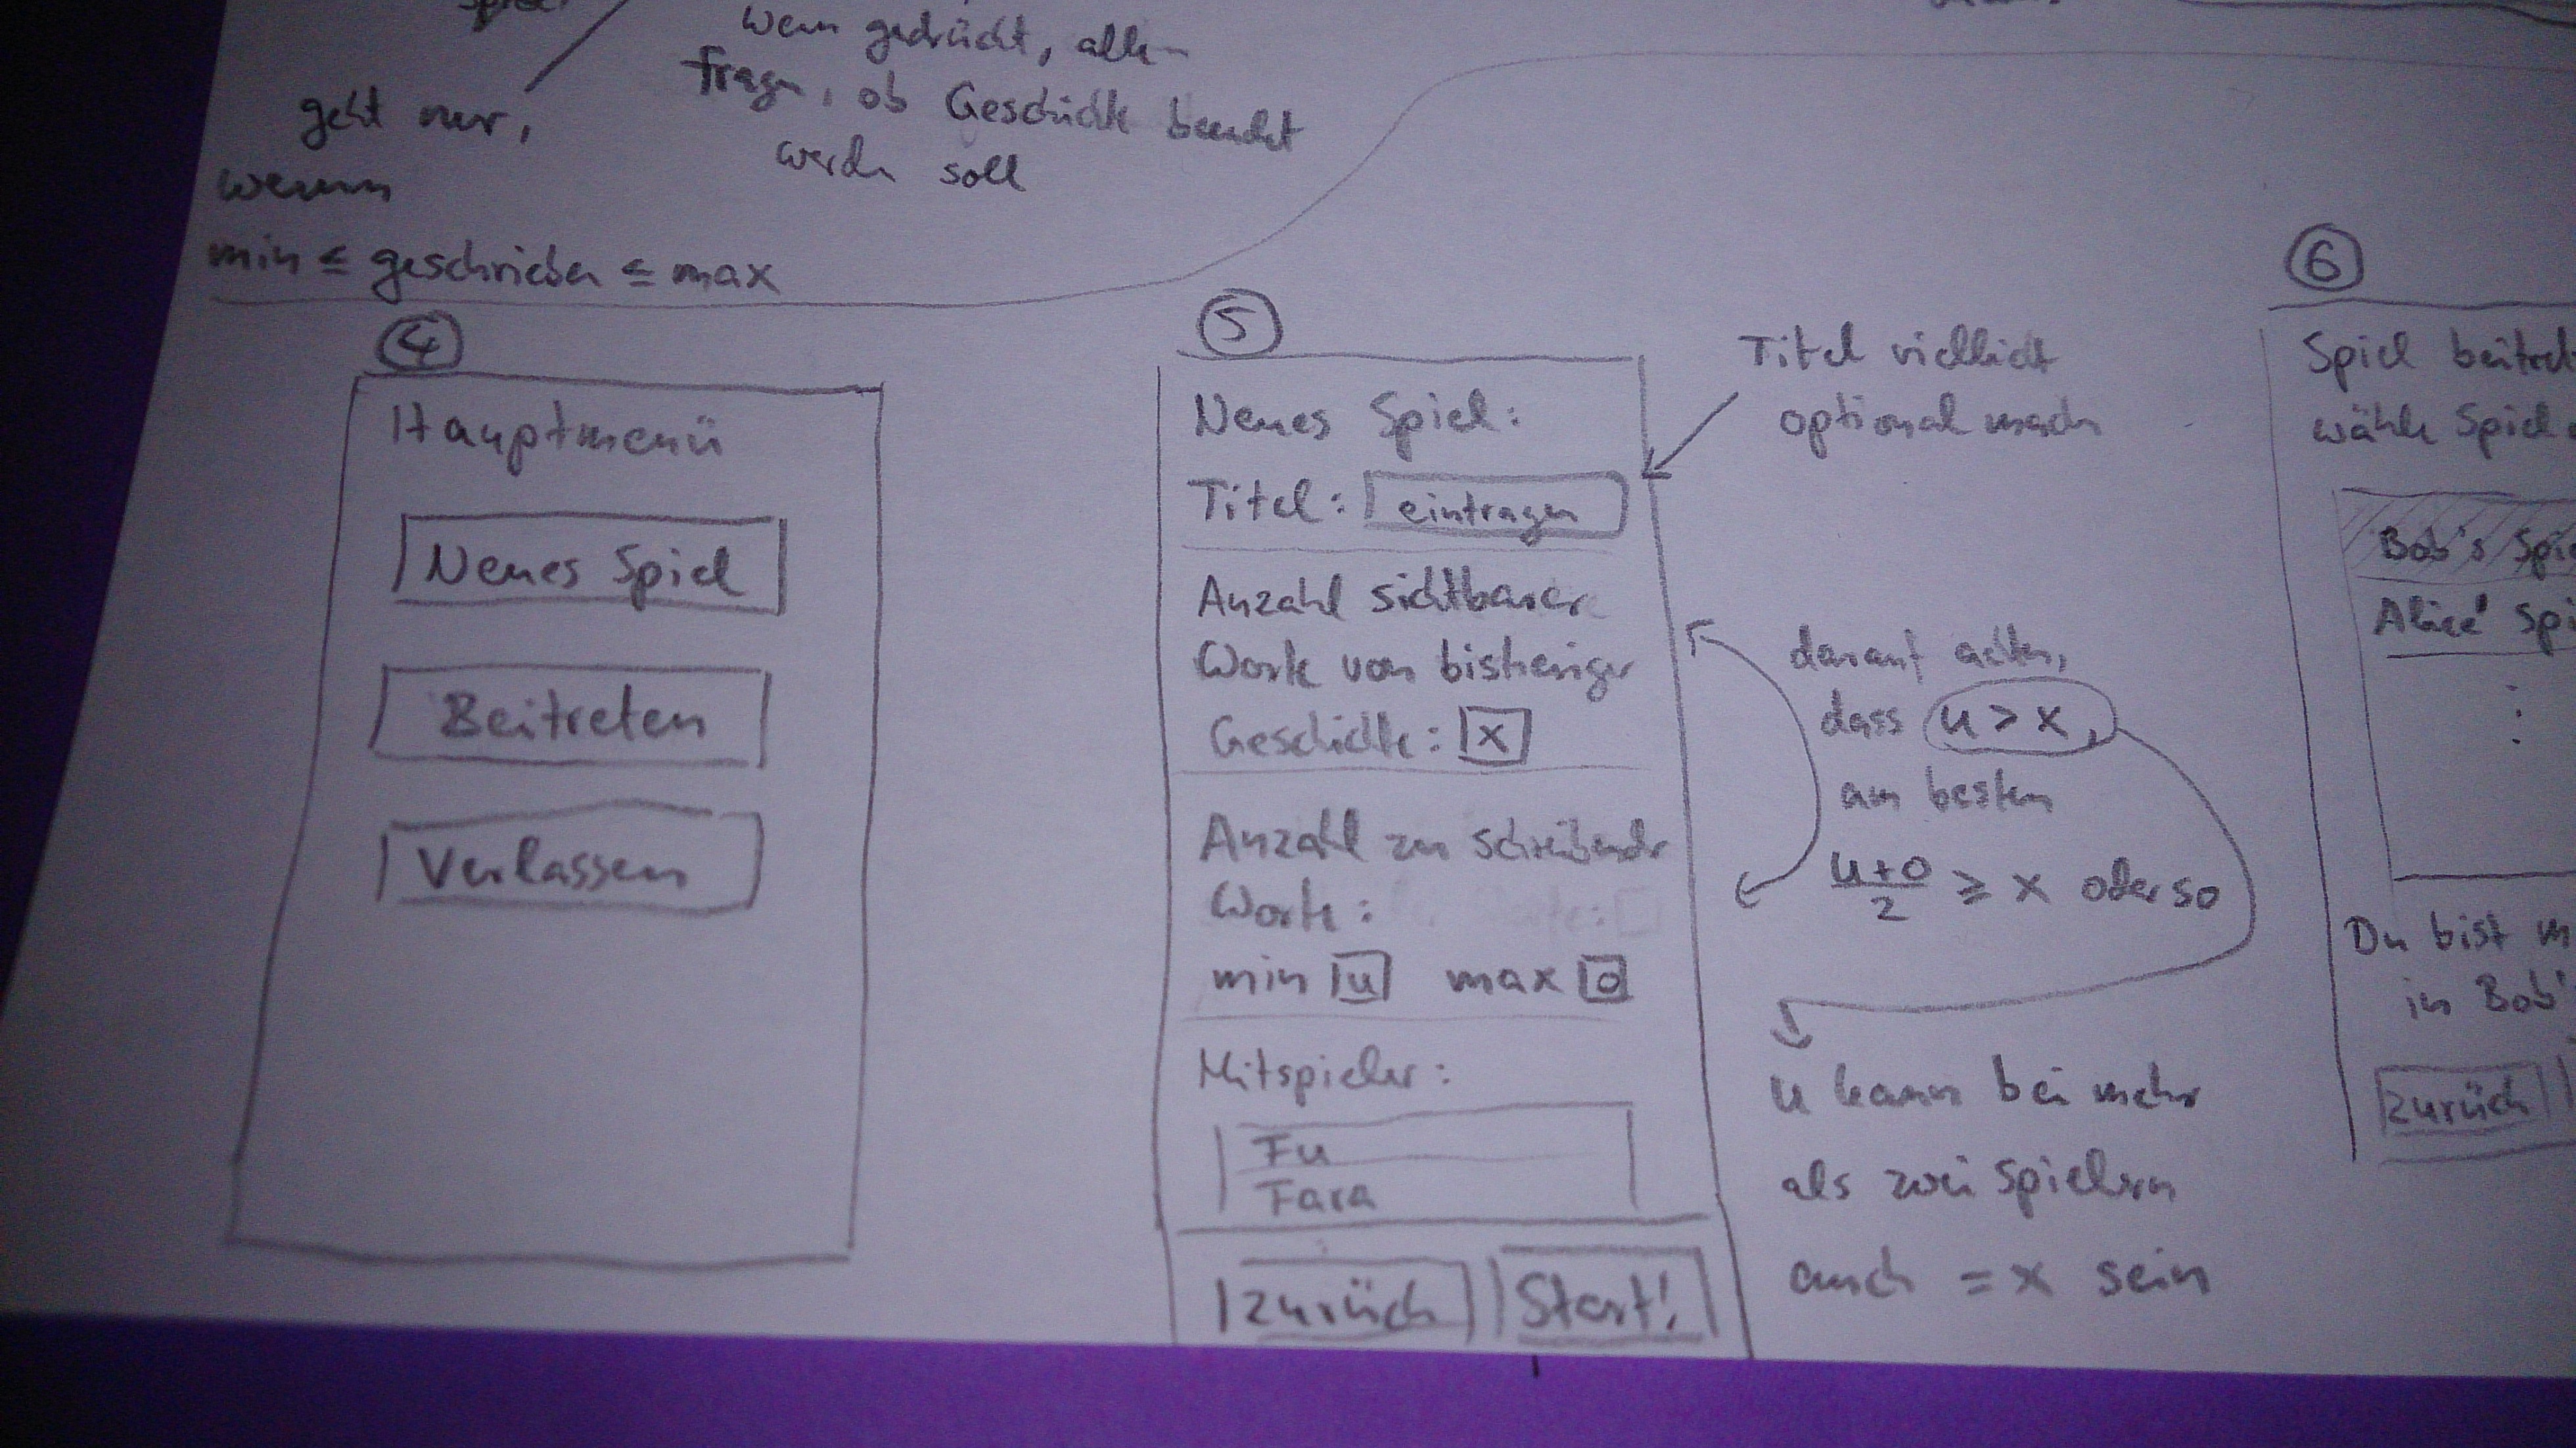 wenn gedrückt, allen
fragen, ob Geschichte beendet
werden soll
geht nur,
wenn
min ≤ geschrieben ≤ max
4
Hauptmenü
Neues Spiel
Beitreten
Verlassen
5
Neues Spiel:
Titel: eintragen
Anzahl sichtbarer
Worte von bisheriger
Geschichte: x
Anzahl zu schreibender
Worte:
min u max o
Mitspieler:
Fu
Fara
zurück Start!
Titel vielleicht
optional machen
darauf achten,
dass u > x,
am besten
(u+o)/2 ≥ x oder so
u kann bei mehr
als zwei Spielern
auch = x sein
6
Spiel beitret
wähle Spiel
Bob's Spi
Alice' Spi
Du bist m
in Bob'
zurück